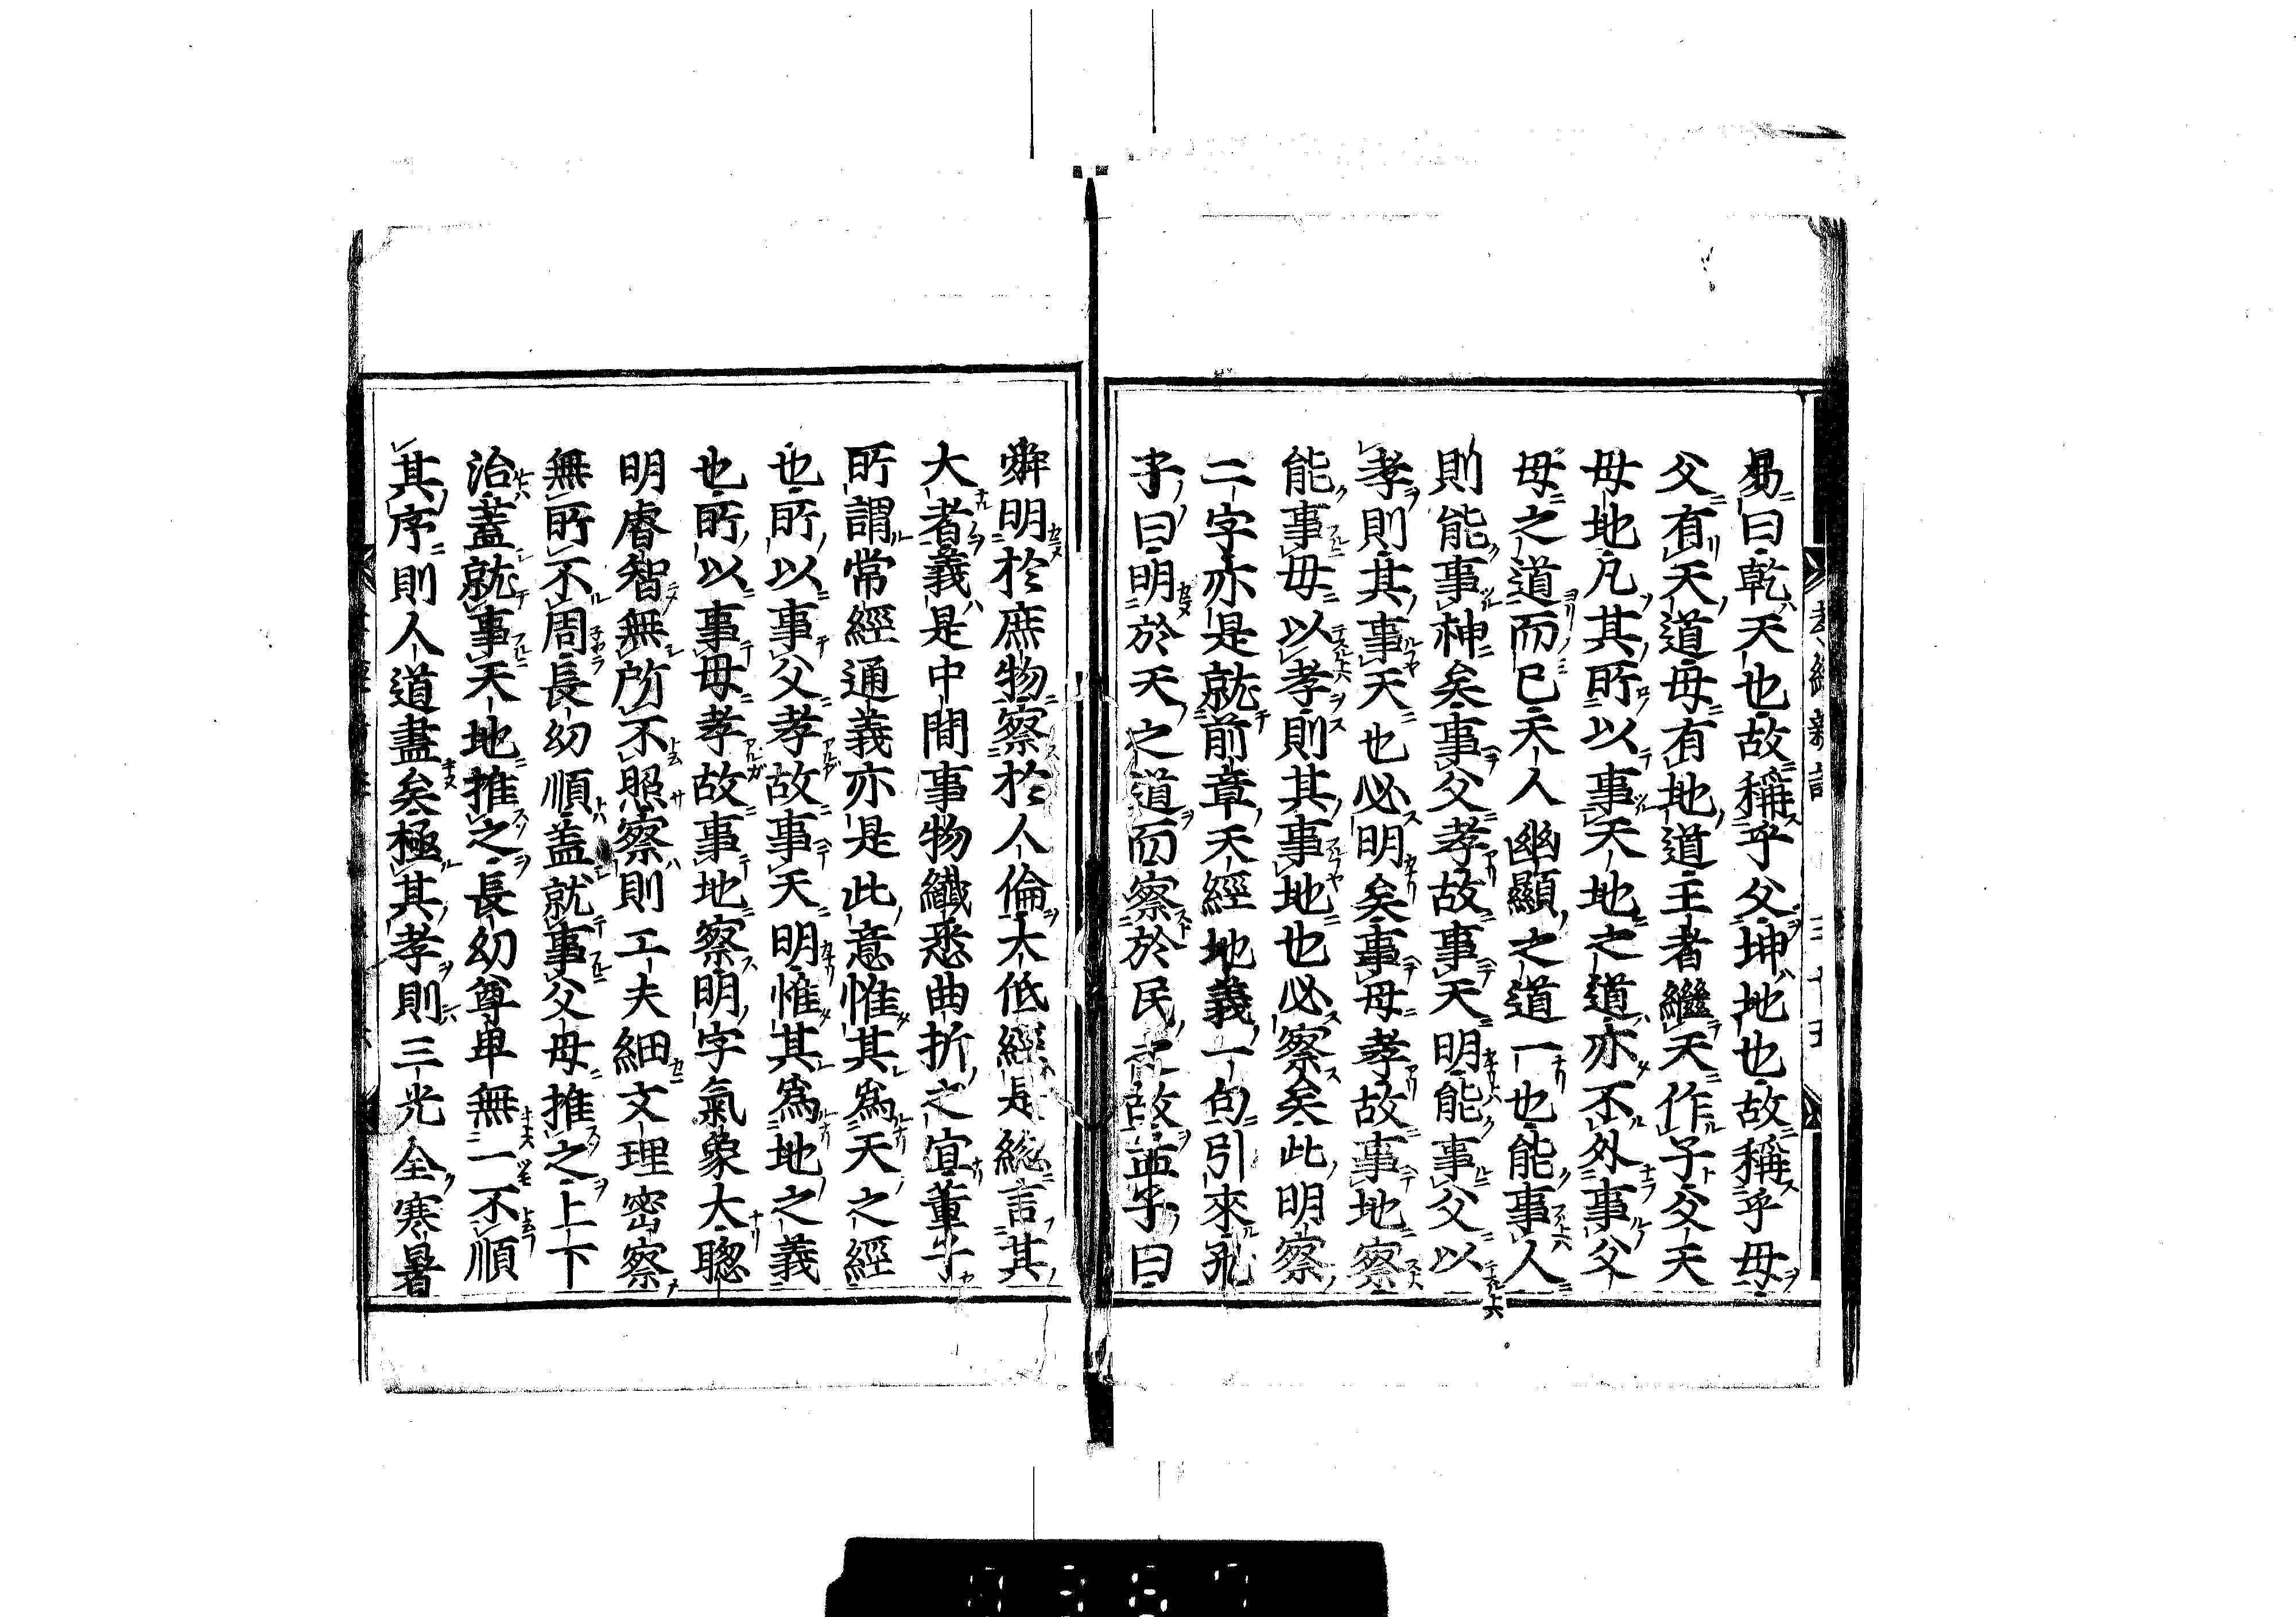 易曰乾天也故稱乎父坤地也故稱乎母
父有天道母有地道王者繼天作子父天
母地凡其所以事天地之道亦不外事父
母之道而已天人幽顯之道一也能事人
則能事神矣事父孝故事天明能事父以
孝則其事天也必明矣事母孝故事地察
能事母以孝則其事地也必察矣此明察
二字亦是就前章天經地義一句引來孔
子曰明於天之道而察於民之故孟子曰
舜明於庶物察於人倫大低經是総言其
大者義是中間事物纖悉曲折之宜董子
所謂常經通義亦是此意惟其爲天之經
也所以事父孝故事天明惟其爲地之義
也所以事母孝故事地察明字氣象大聰
明睿智無所不照察則工夫細文理密察
無所不周長幼順盖就事父母推之上下
治蓋就事天地推之長幼尊卑無一不順
其序則人道盡矣極其孝則三光全寒暑